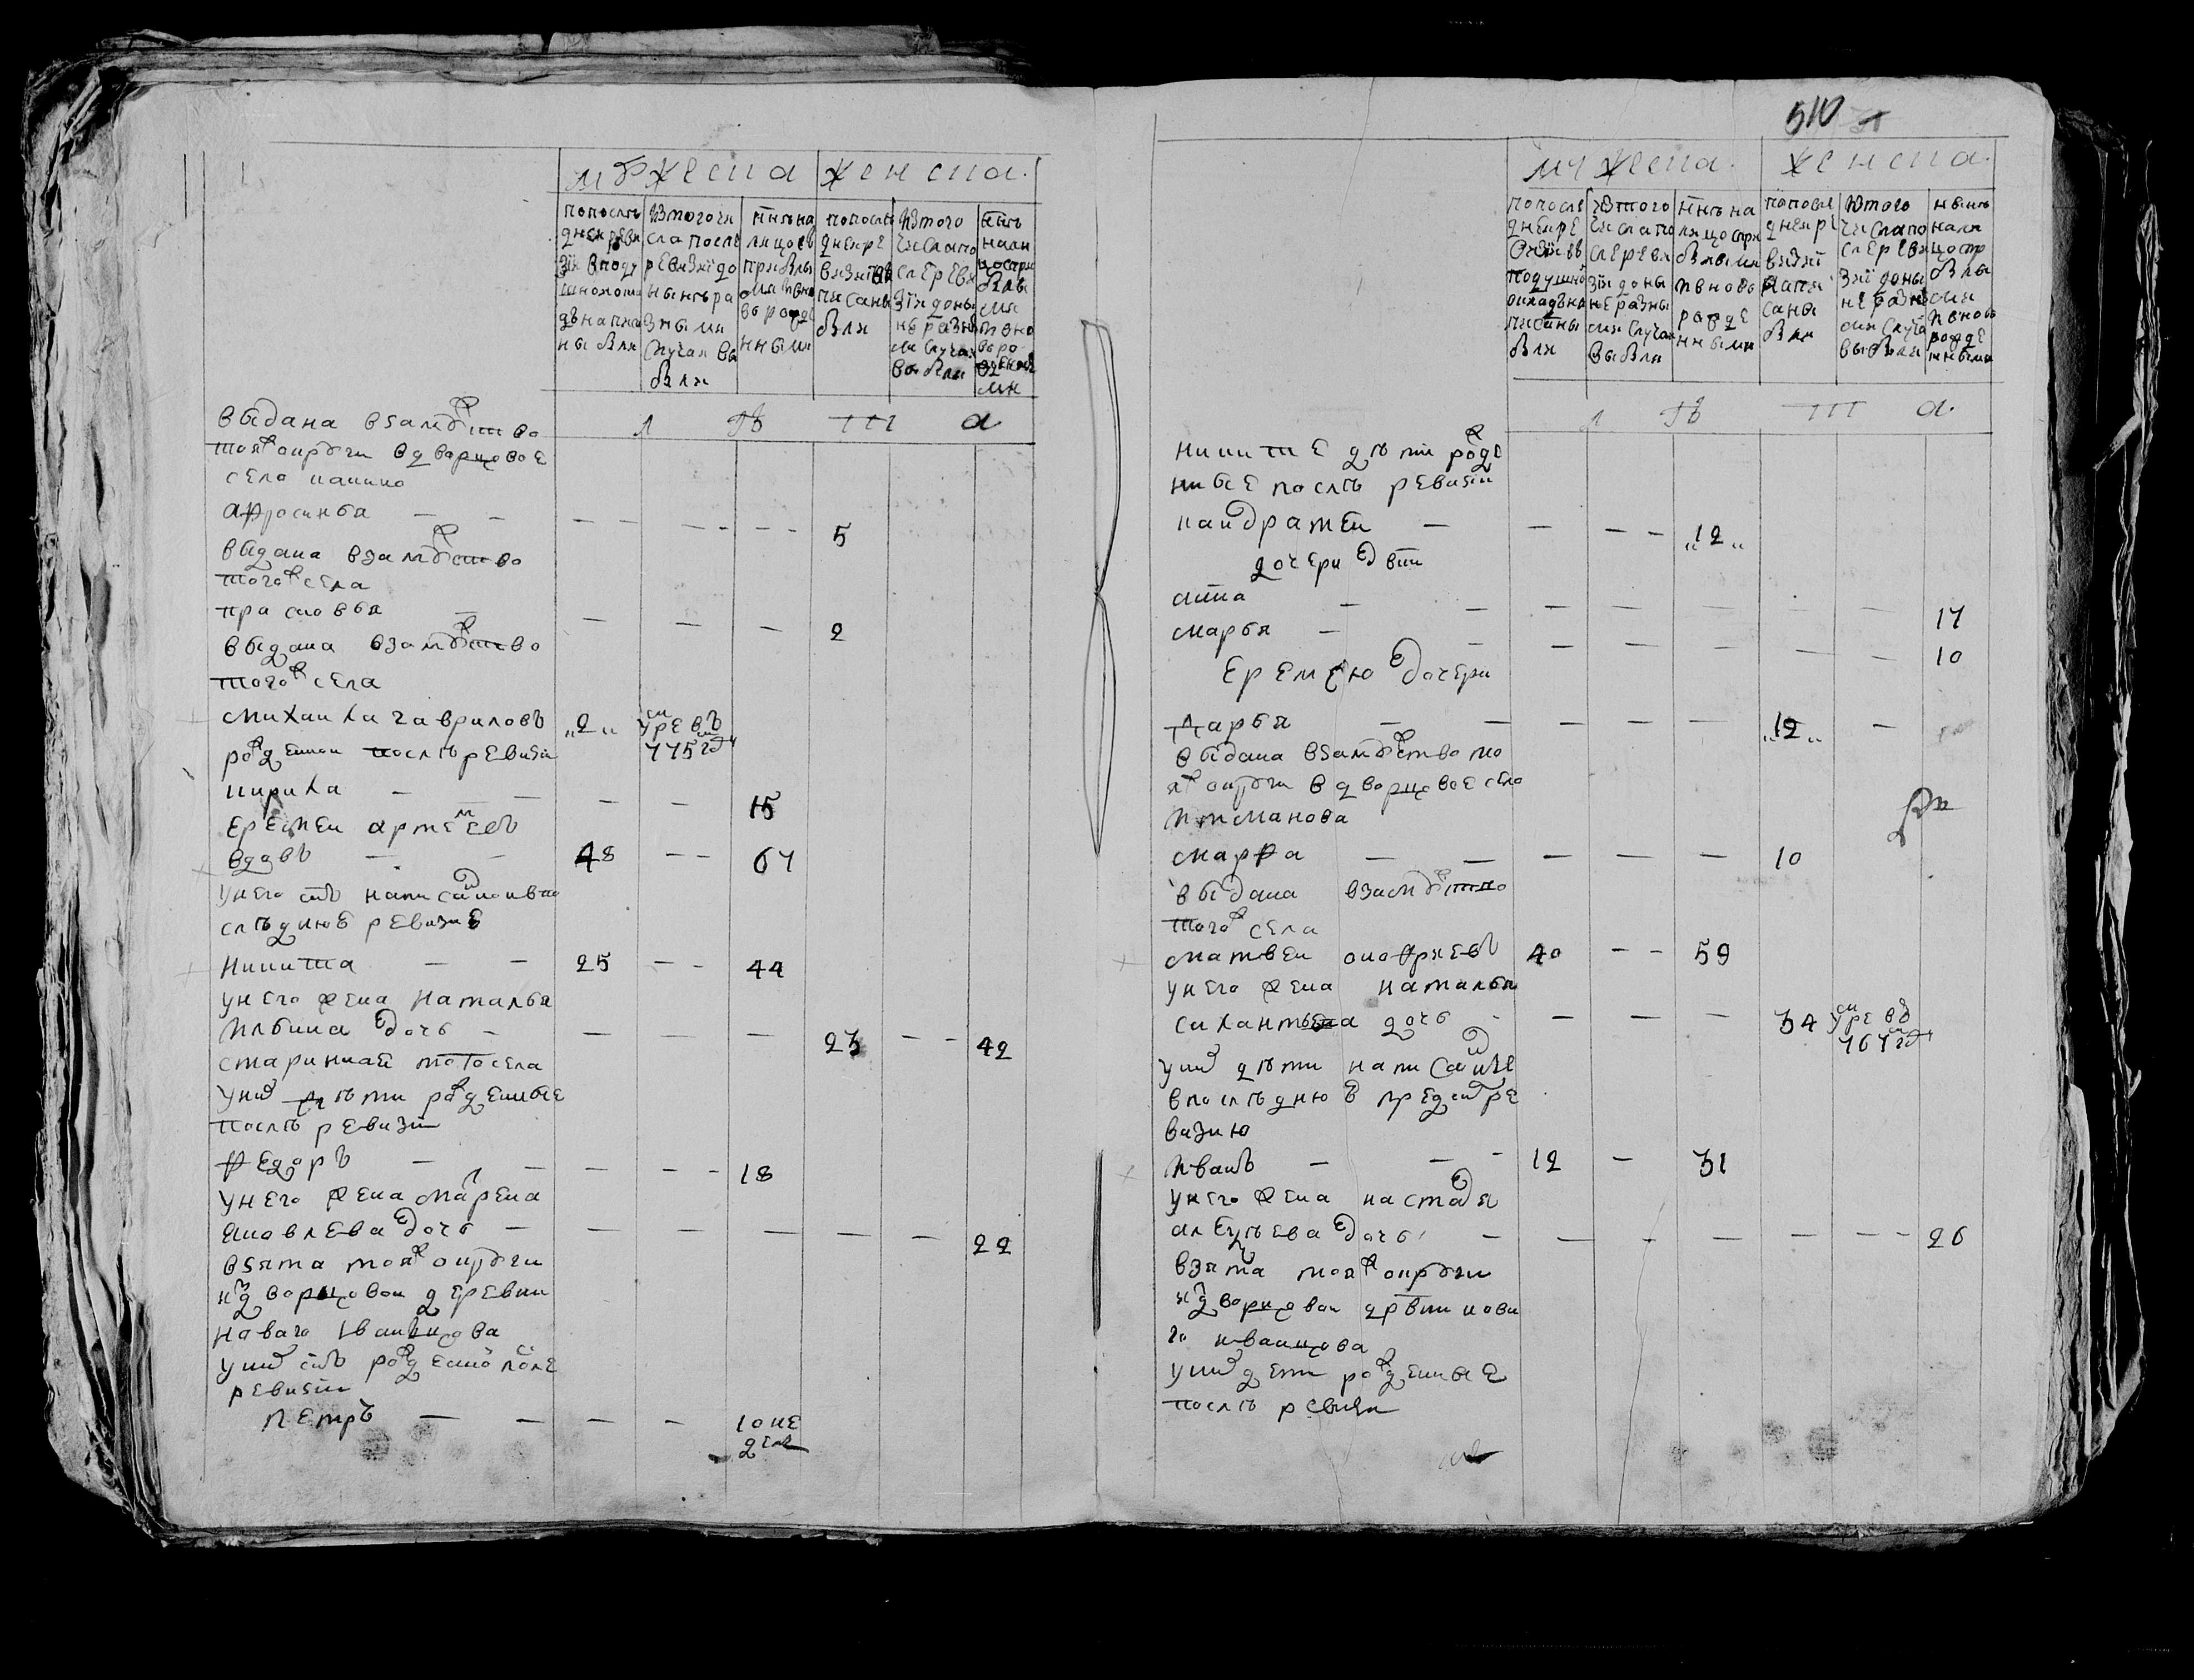 мужеска женска
попослѣ
дней реви
зіи вподу
шномокла
дѣ написа
ны были
Изтогочи
сла послѣ
ревизіи до
нынѣ ра
зными
случаи вы
были
ннѣ на
лицосъ
прибылы
ми вно
во рожде
нными
попослѣ
дней ре
визіи
писаны
были
Изтого
числапо
слереви
зіи доны
не разны
ми случаи
выбыли
ннѣ
нали
цоспри
былы
ми
вно
ворож
денны
ми
л ѣ т а
выдана взамуство
тояж округи вдворцовое
село
афросинья — — — — — — — 5
выдана взамуство
тогож села
прасковья — — — — 2
выдана взамуство
тогож села
михайла гавриловъ „2„ умре въ
775 году
рожденной послѣ ревизіи
кирила — — — — 15
еремей артемьевъ
вдовъ — — 48 — — 67
унего сынъ написанной впо
следнюю ревизию
никита — — 25 — — 44
унего жена наталья
ильина дочь — — — — 23 — — 42
стариннай тогосела
уних дѣти рожденные
послѣ ревизіи
федоръ — — — — — 18
унего жена марена
яковлева дочь — — — — — — 22
взята тояж округи
из дворцовой деревни
новаго Іванцова
уних сынъ рожденной после
ревизіи
петръ — — — — 10 не
дель
510
мужеска женска
попосле
дней ре
визіи въ
подушной
окладѣна
писаны
были
Изтого
числапо
слереви
зіи доны
не разны
ми случаи
выбыли
ннѣ на
лицоспри
былыми
вновь
рожде
нными
попосле
дней ре
визіи
напи
саны
были
Изтого
числапо
слереви
зіи доны
не разны
ми случа
выбыли
нынѣ
нали
цоспр
былы
ми
вновь
рожде
нными
л ѣ т а
никите дѣти рожде
нные послѣ ревизіи
кандратей — — — — „12„
дочери ево
анна — — — — — — — 17
марья — — — — — — — 10
еремею дочери
дарья — — — — — „12„ —
выдана взамуство то
яж округи вдворцовое село
марфа — — — — — 10
выдана взамуство
тогож села
матвей онофриевъ 40 — — 59
унего жена наталья
дочь — — — — 34 умре въ
767 году
уних дѣти написанные
впослѣднюю пред сим ре
визию
Иванъ — — — 12 — 31
унего жена настасья
алексѣева дочь — — — — — — — 26
взята тояж округи
из дворцовой дрвни нова
го иванцова
уних дети рожденные
послѣ ревизіи